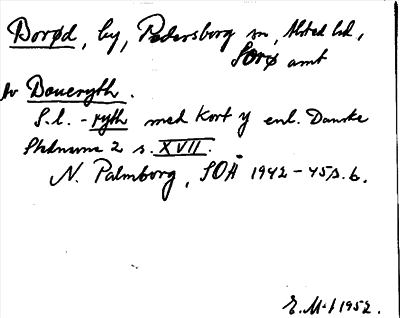 Dorød, by, Pedersborg sn, Alsted hd,
Sorø amt
hv Doueryth.
S.l. -ryth med kort y enl. Danske
Stednavne 2 s. XVII.
N. Palmborg, SOÅ 1942-45 s. 6.
E.M-l 1952.